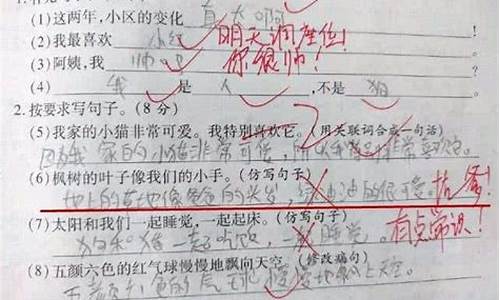 (1)这两年,小区的变化 真大啊
(2)我最喜欢 小红 明天调座位!
(3)阿姨,我 帅吗 你很帅!
(4) 我 是 人 ,不是 狗
2.按要求写句子。(8 分)
(5)我家的小猫非常可爱。我特别喜欢它。(用关联词合成一句话)
因为我家的小猫非常可爱,所以我特别非常喜欢它。
(6)枫树的叶子像我们的小手。(仿写句子)
地上的草地像爸爸的头发,绿油油的很可爱。 抗爹!
(7)太阳和我们一起睡觉,一起起床。(仿写句子)
狗和猪一起吃饭,一起睡觉。 有点常识!
(8)五颜六色的红气球慢慢地飘向天空。(修改病句)
五颜六色的气球慢慢地飘上天空。